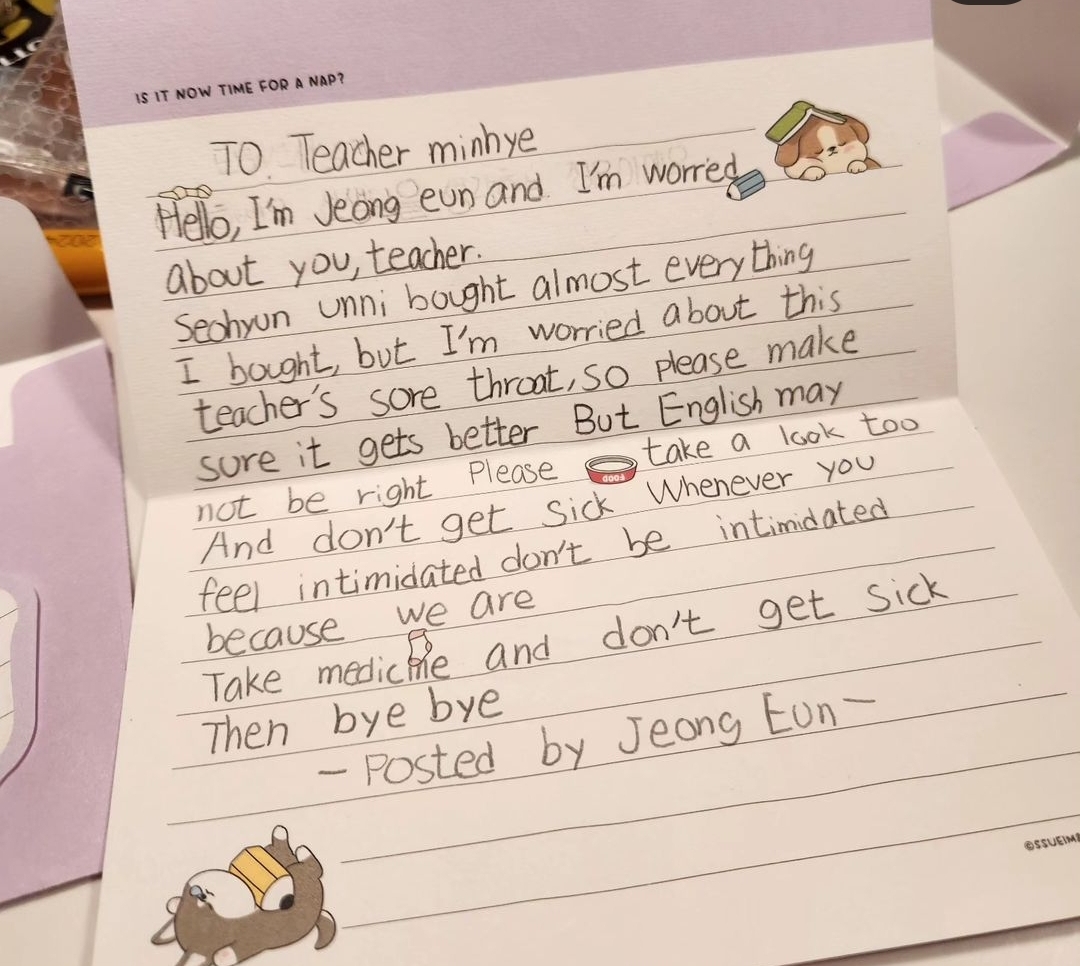 IS IT NOW TIME FOR A NAP?
TO. Teacher minhye
Hello, I'm Jeong eun and I'm worred
about you, teacher.
Seohyun unni bought almost everything
I bought, but I'm worried about this
teacher's sore throat, so please make
sure it gets better But English may
not be right Please FOOD take a look too
And don't get sick Whenever you
feel intimidated don't be intimidated
because we are
Take medicine and don't get sick
Then bye bye
- Posted by Jeong Eun -
©SSUEIM